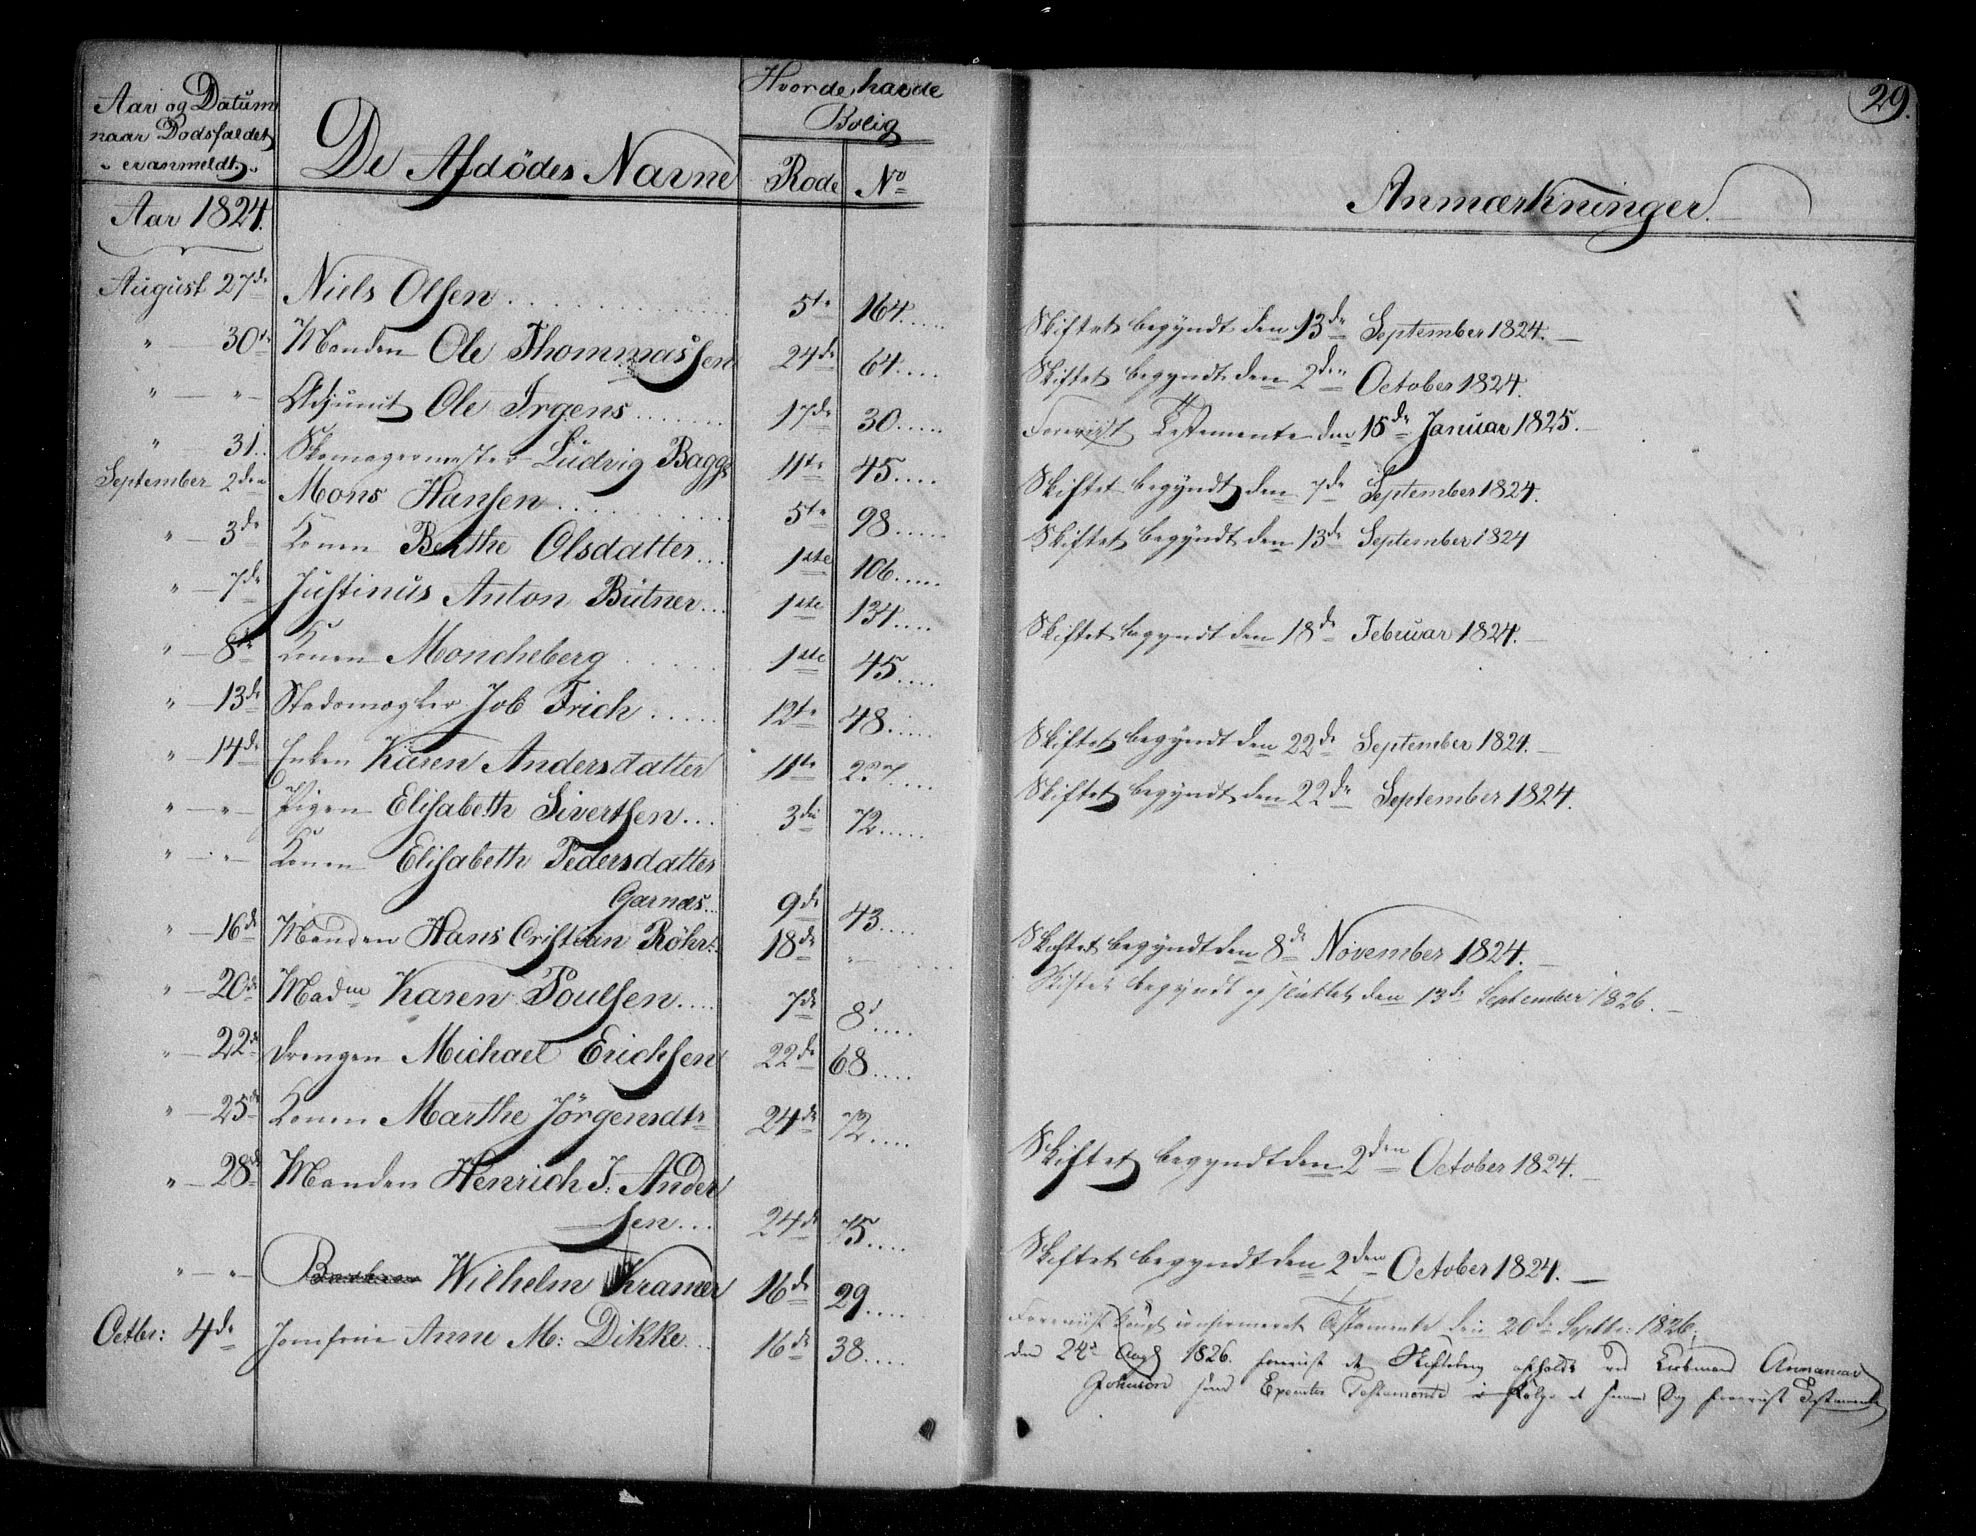 Aar og Datum
naar Dødsfaldet
er anmeldt.
De Afdödes Navne
Hvor de havde
Bolig
Rode No
Anmærkninger.
29.
Aar 1824.
August 27de Niels Olsen 5te 164
Skiftet begyndt den 13de September 1824.
" 30te Manden Ole Thommassen 24de 64
Skiftet begyndt den 2den October 1824.
" " Adjunct Ole Irgens 17de 30
Foreviist Testamente den 15de Januar 1825.
" 31. Skomagermester Ludvig Bagge 11te 45
Skiftet begyndt den 7de September 1824.
September 2den Mons Hansen 5te 98
Skiftet begyndt den 13de September 1824
" 3de Konen Berthe Olsdatter 1ste 106
" 7de Justinus Anton Bütner 1ste 134
Skiftet begyndt den 18de Februar 1824.
" 8de Konen Moncheberg 1ste 45
" 13de Stadsmægler Job Frich 12te 48
Skiftet begyndt den 22de September 1824.
" 14de Enken Karen Andersdatter 11te 237
Skiftet begyndt den 22de September 1824.
" " Pigen Elisabeth Sivertsen 3die 72
" " Konen Elisabeth Pedersdatter
Garnæs 9de 43
Skiftet begyndt den 8de November 1824.
" 16de Manden Hans Cristian Röhrt 18de "
Skiftet begyndt og sluttet den 13de September 1826.
" 20de Madme Karen Poulsen 7de
" 22de Drengen Michael Erichsen 22de 68
" 25de Konen Marthe Jörgensdtr 24de 72
Skiftet begyndt den 2den October 1824.
" 28de Manden Henrich J. Ander
sen 24de 75
Skiftet begyndt den 2den October 1824.
" " Wilhelm Kramer 16de 29
Foreviist confirmeret Testamente den 20de Septbr: 1826.
Octbr: 4de Jomfrue Anne M: Dikke 16de 38
den 24de Aug 1826. foreviist
Johnson Testamente foreviist Testamente